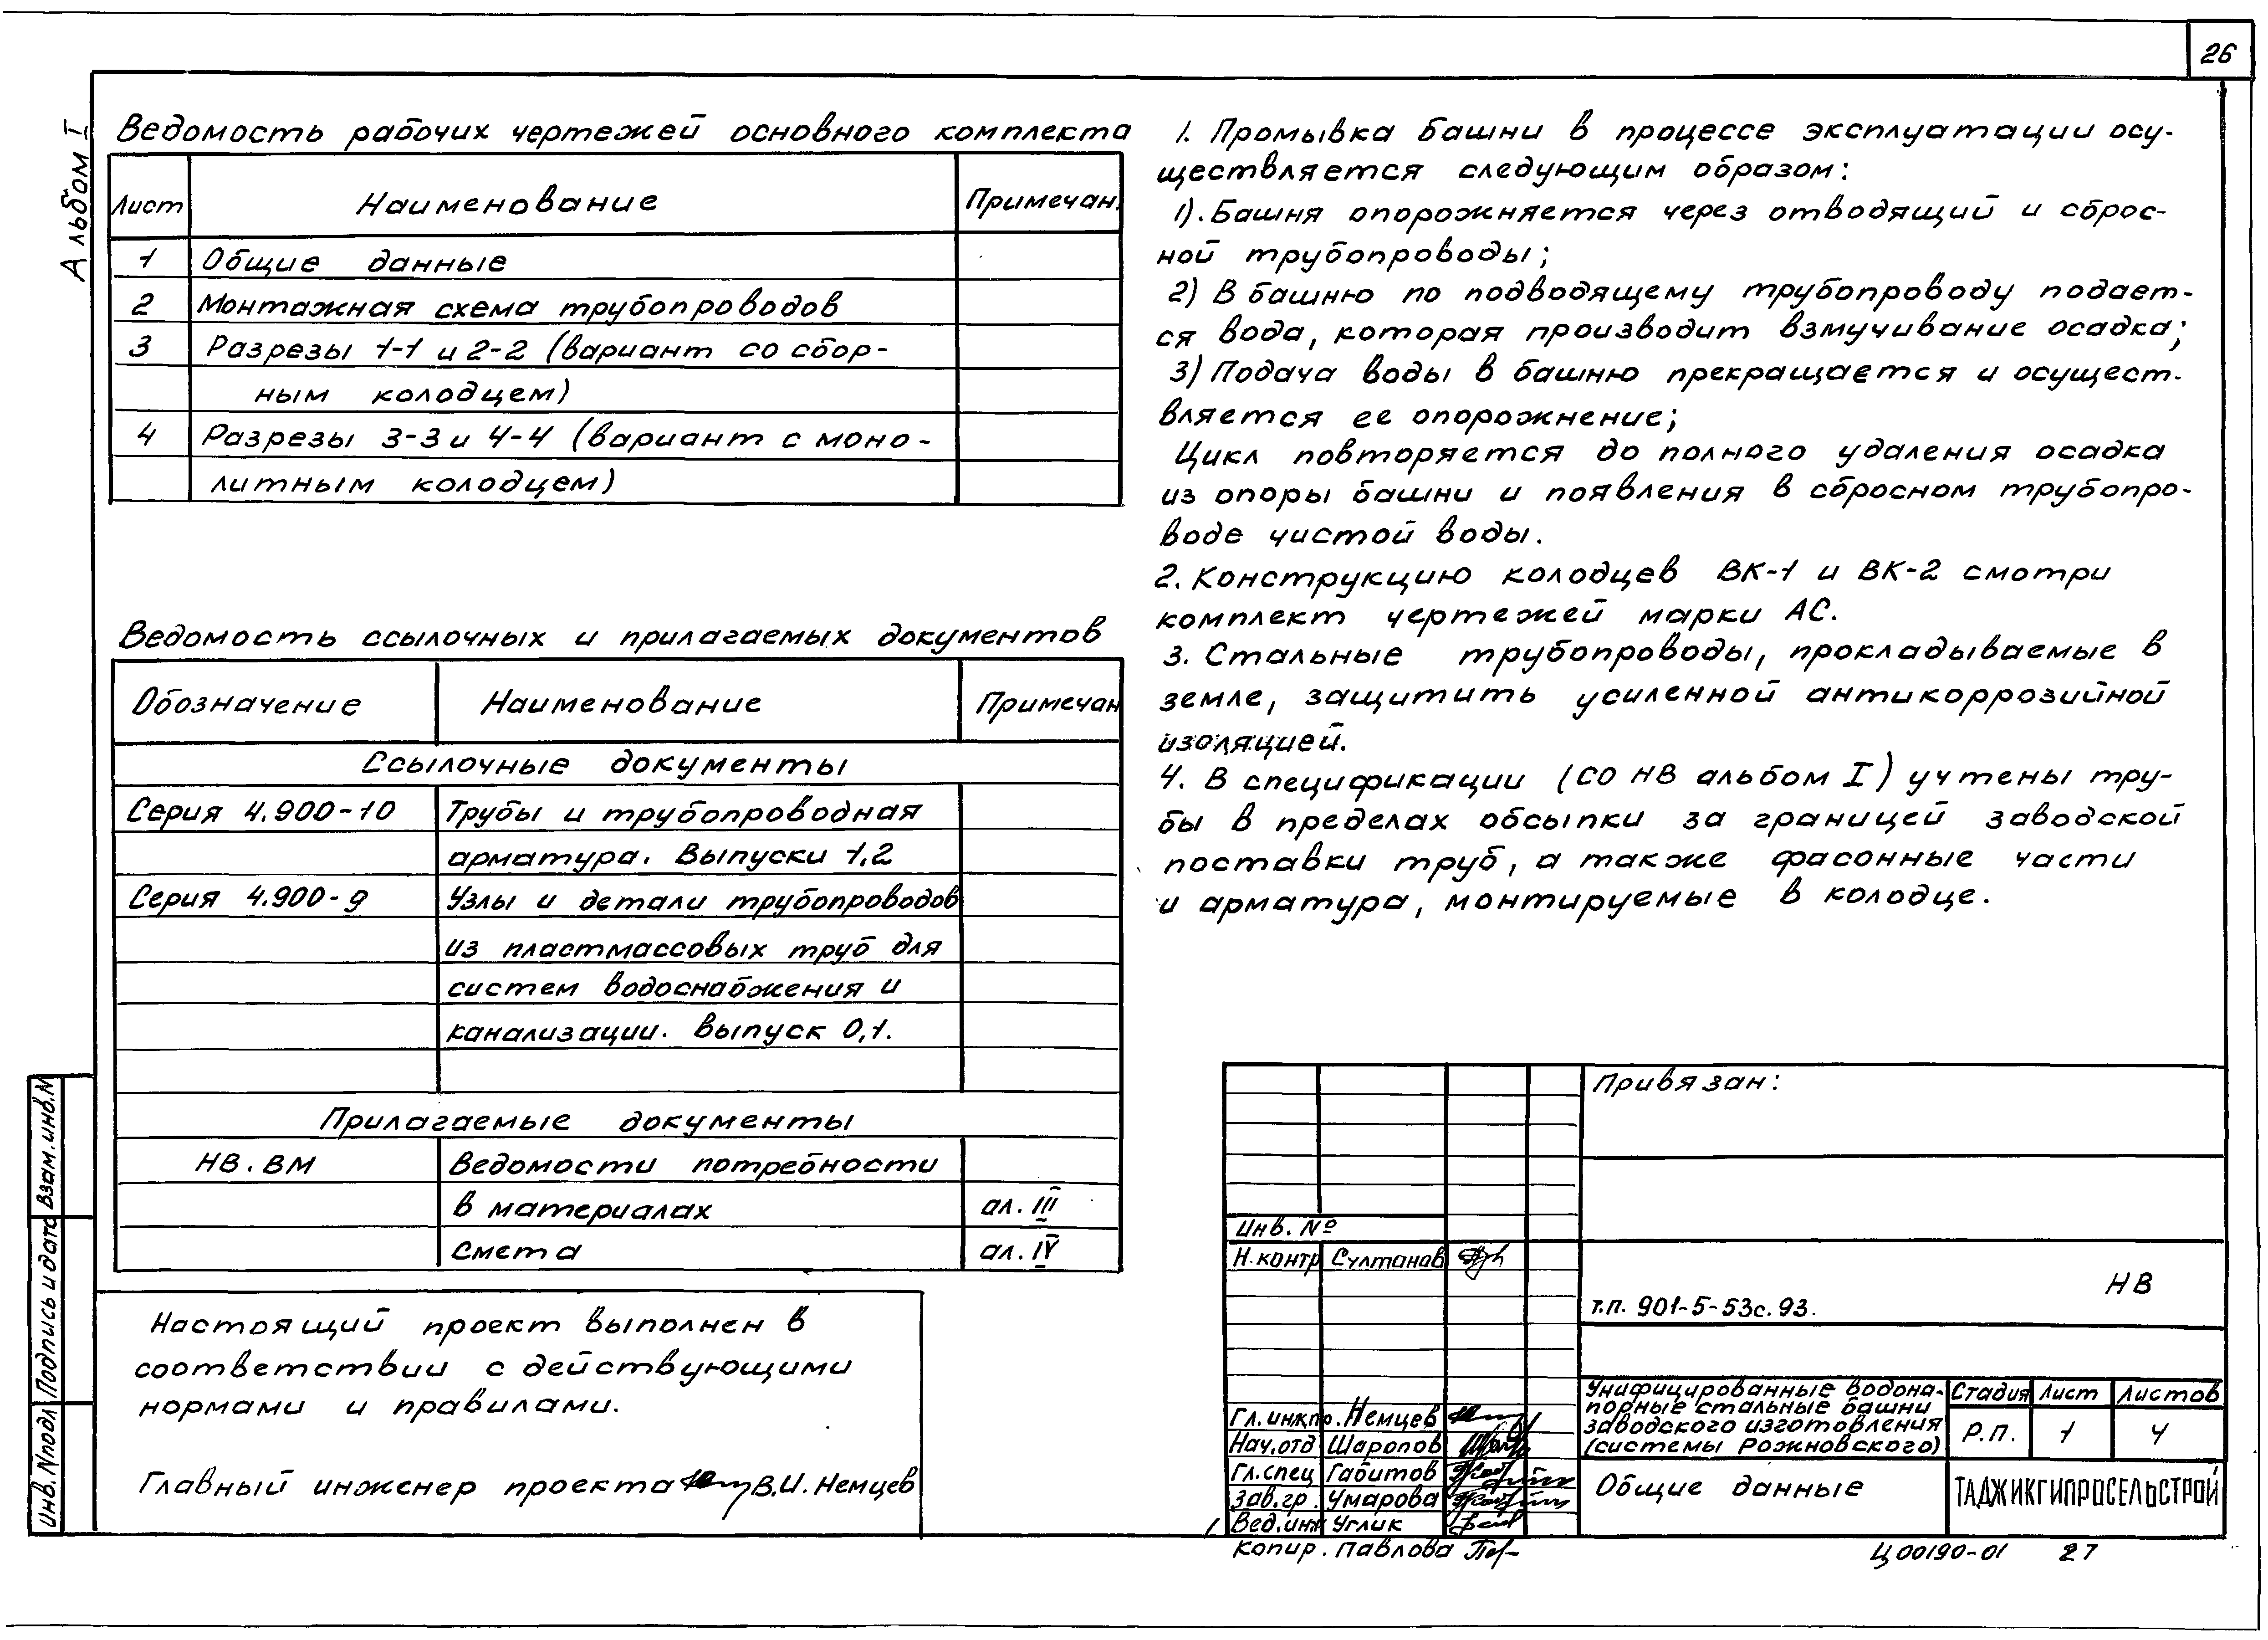 26
Альбом I
Ведомость рабочих чертежей основного комплекта
Лист Наименование Примечан.
1 Общие данные
2 Монтажная схема трубопроводов
3 Разрезы 1-1 и 2-2 (вариант со сбор-
ным колодцем)
4 Разрезы 3-3 и 4-4 (вариант с моно-
литным колодцем)
Ведомость ссылочных и прилагаемых документов
Обозначение Наименование Примечан
Ссылочные документы
Серия 4.900-10 Трубы и трубопроводная
арматура. Выпуски 1,2
Серия 4.900-9 Узлы и детали трубопроводов
из пластмассовых труб для
систем водоснабжения и
канализации. Выпуск 0,1.
Прилагаемые документы
НВ.ВМ Ведомости потребности
в материалах ал. III
Смета ал. IV
Настоящий проект выполнен в
соответствии с действующими
нормами и правилами.
Главный инженер проекта В.И. Немцев
1. Промывка башни в процессе эксплуатации осу-
ществляется следующим образом:
1). Башня опорожняется через отводящий и сброс-
ной трубопроводы;
2) В башню по подводящему трубопроводу подает-
ся вода, которая производит взмучивание осадка;
3) Подача воды в башню прекращается и осущест-
вляется ее опорожнение;
Цикл повторяется до полного удаления осадка
из опоры башни и появления в сбросном трубопро-
воде чистой воды.
2. Конструкцию колодцев ВК-1 и ВК-2 смотри
комплект чертежей марки АС.
3. Стальные трубопроводы, прокладываемые в
земле, защитить усиленной антикоррозийной
изоляцией.
4. В спецификации (СО НВ альбом I) учтены тру-
бы в пределах обсыпки за границей заводской
поставки труб, а также фасонные части
и арматура, монтируемые в колодце.
Привязан:
Инв. №
Н.контр Султанов
НВ
т.п. 901-5-53с.93.
Гл.инж.пр. Немцев
Нач.отд Шаропов
Гл.спец Габитов
Зав.гр. Умарова
Вед.инж Углик
Унифицированные водона-
порные стальные башни
заводского изготовления
(системы Рожновского)
Стадия Лист Листов
Р.П. 1 4
Общие данные
ТАДЖИКГИПРОСЕЛЬСТРОЙ
Копир. Павлова
Ц00190-01 27
Инв. N подл Подпись и дата Взам. инв. N